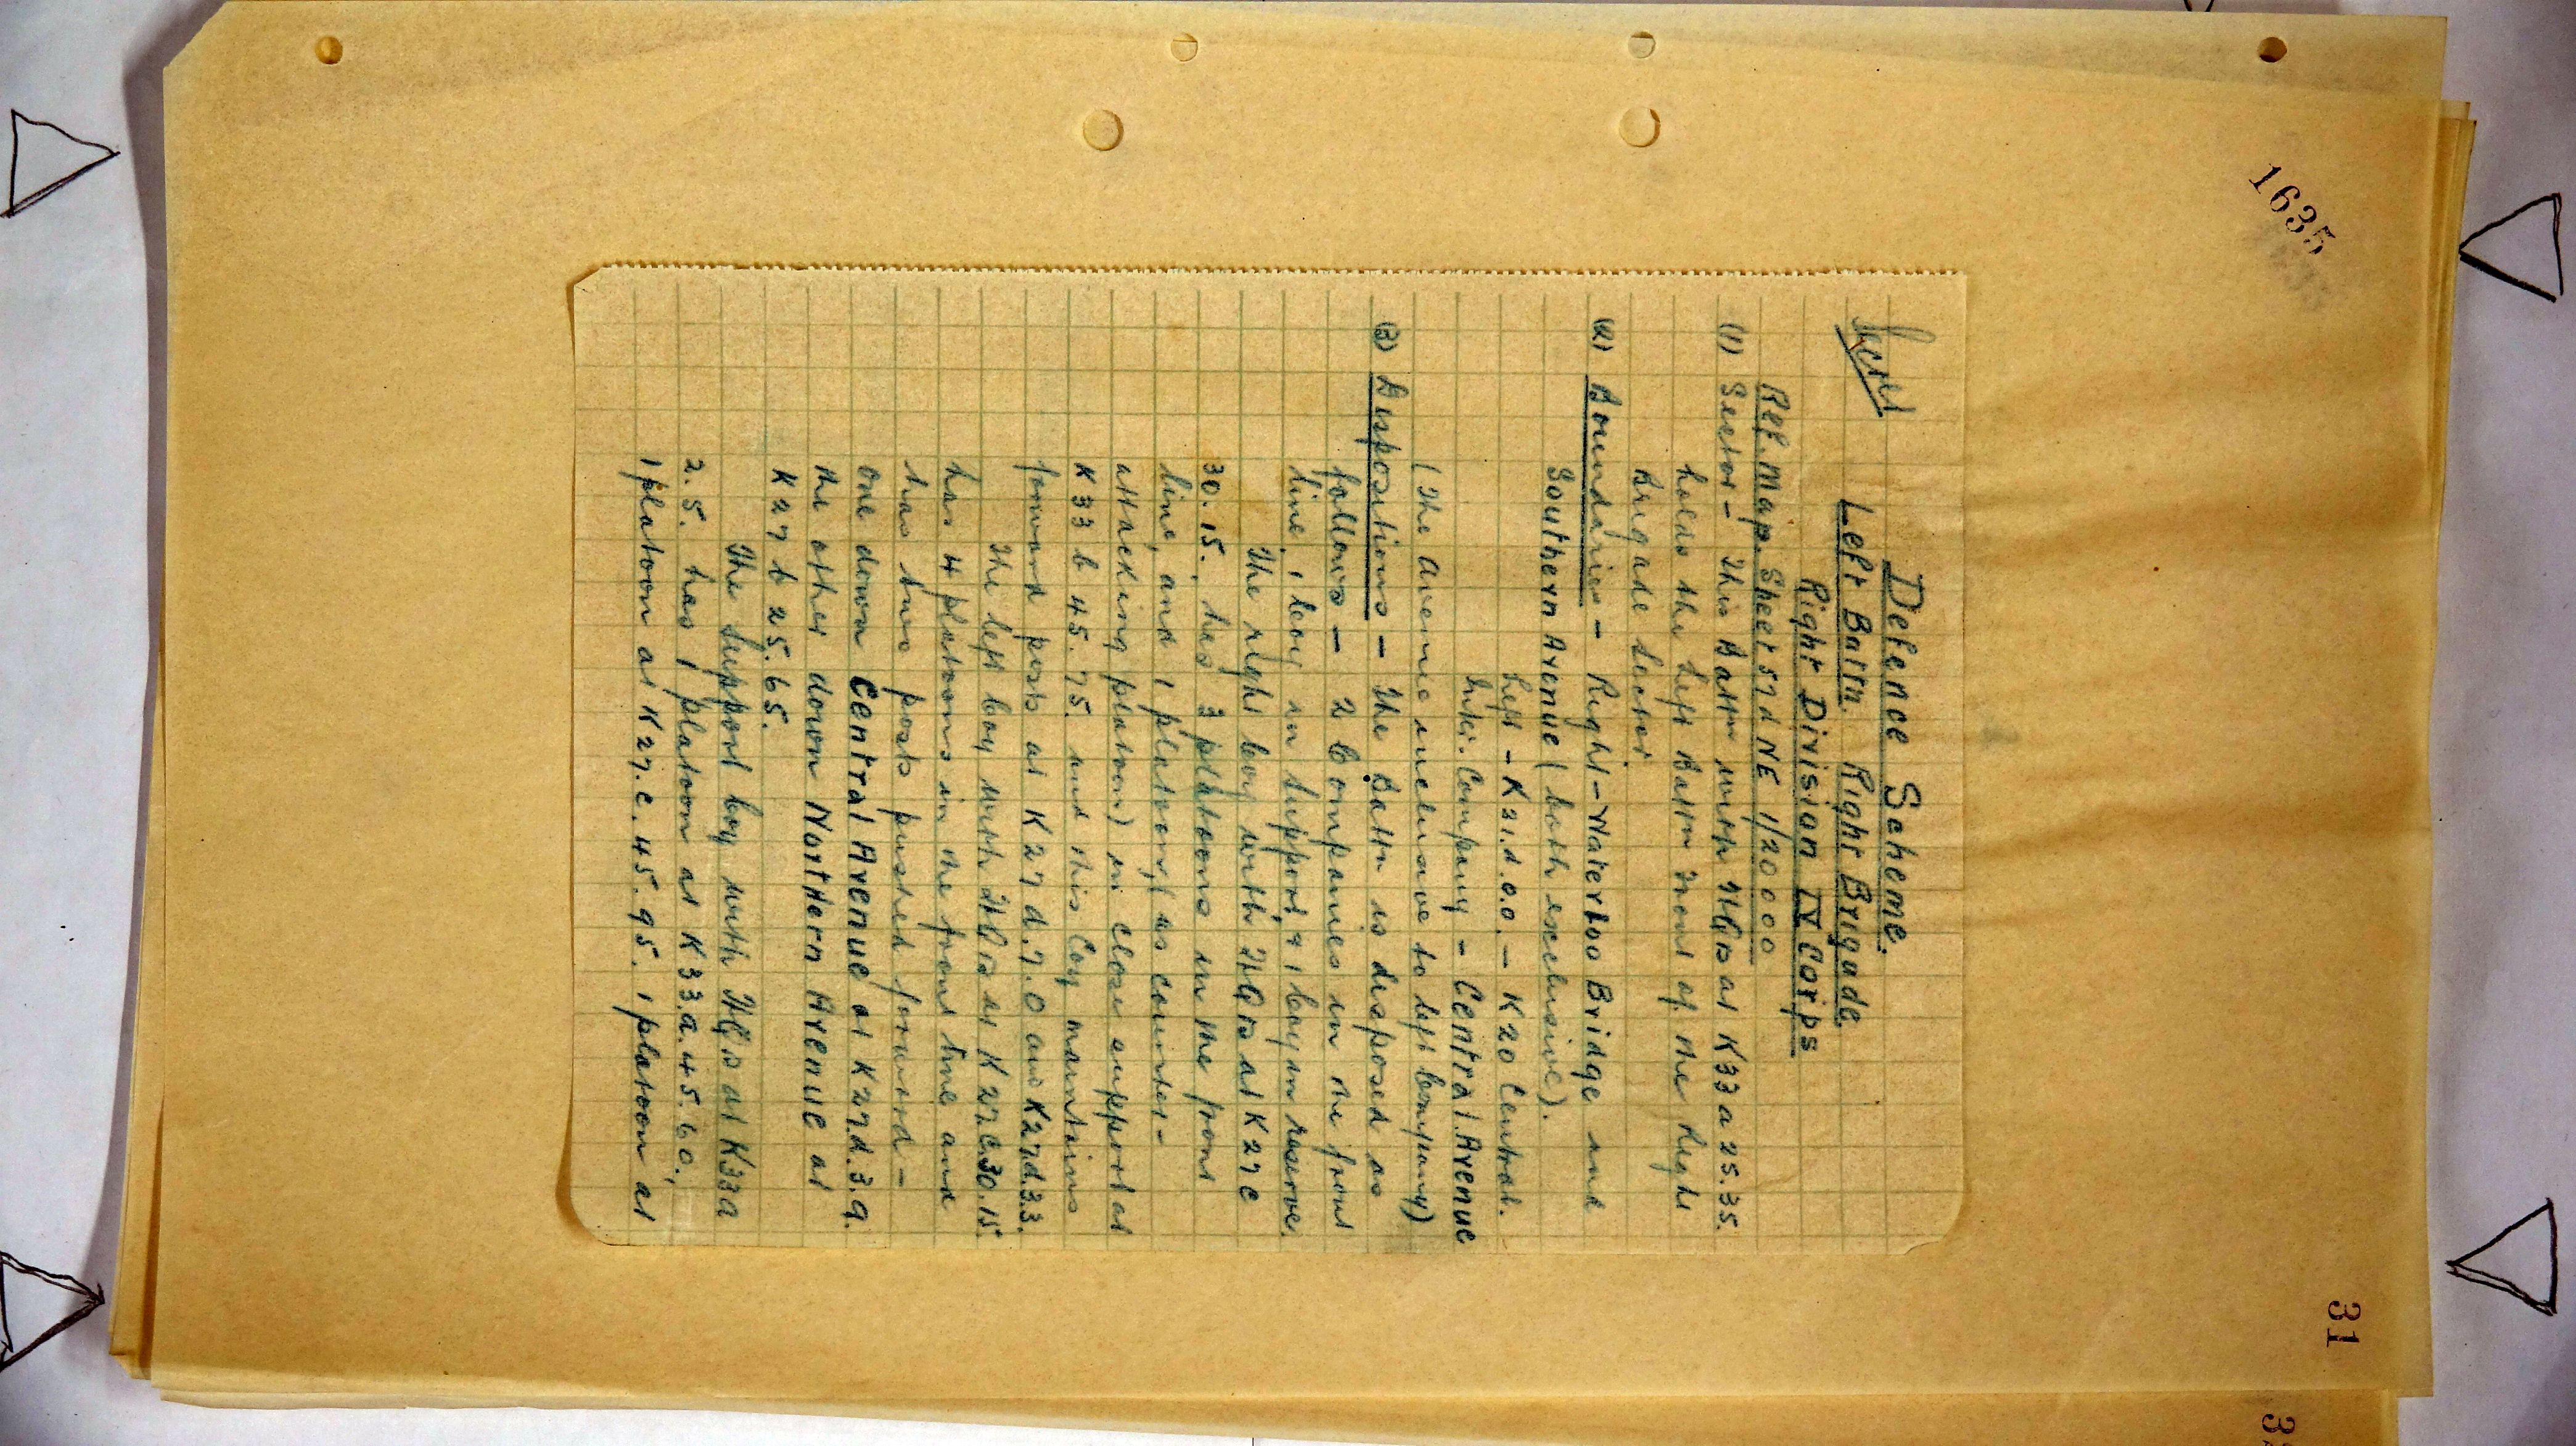 1635
31
Secret
Defence Scheme.
Left Battn. Right Brigade.
Right Division IV Corps
Ref. Map. Sheet 57d NE 1/20000
(1) Sector - This Battn with HQrs at K33 a 25.35.
holds the Left Battn front of the Right
Brigade Sector.
(2) Boundaries - Right - Waterloo Bridge and
Southern Avenue (both exclusive).
Left - K21.d.0.0. - K20 Central.
Inter. Company - Central Avenue
(The Avenue inclusive to left Company)
(3) Dispositions - The Battn is disposed as
follows - 2 Companies in the front
line, 1 Coy in support, & 1 Coy in reserve.
The right Coy with HQrs at K27c
30.15. has 3 platoons in the front
line, and 1 platoon, (as counter-
attacking platoon) in close support at
K33 b 45.75. and this Coy maintains
forward posts at K27d.7.0 and K27d.3.3.
The left Coy with HQrs at K27.c.30.15.
has 4 platoons in the front line and
has two posts pushed forward -
one down Central Avenue at K27.d.3.9.
the other down Northern Avenue at
K27 b 25.65.
The Support Coy with HQrs at K33a
2.5. has 1 platoon at K33.a.45.60,
1 platoon at K27.c.45.95. 1 platoon at